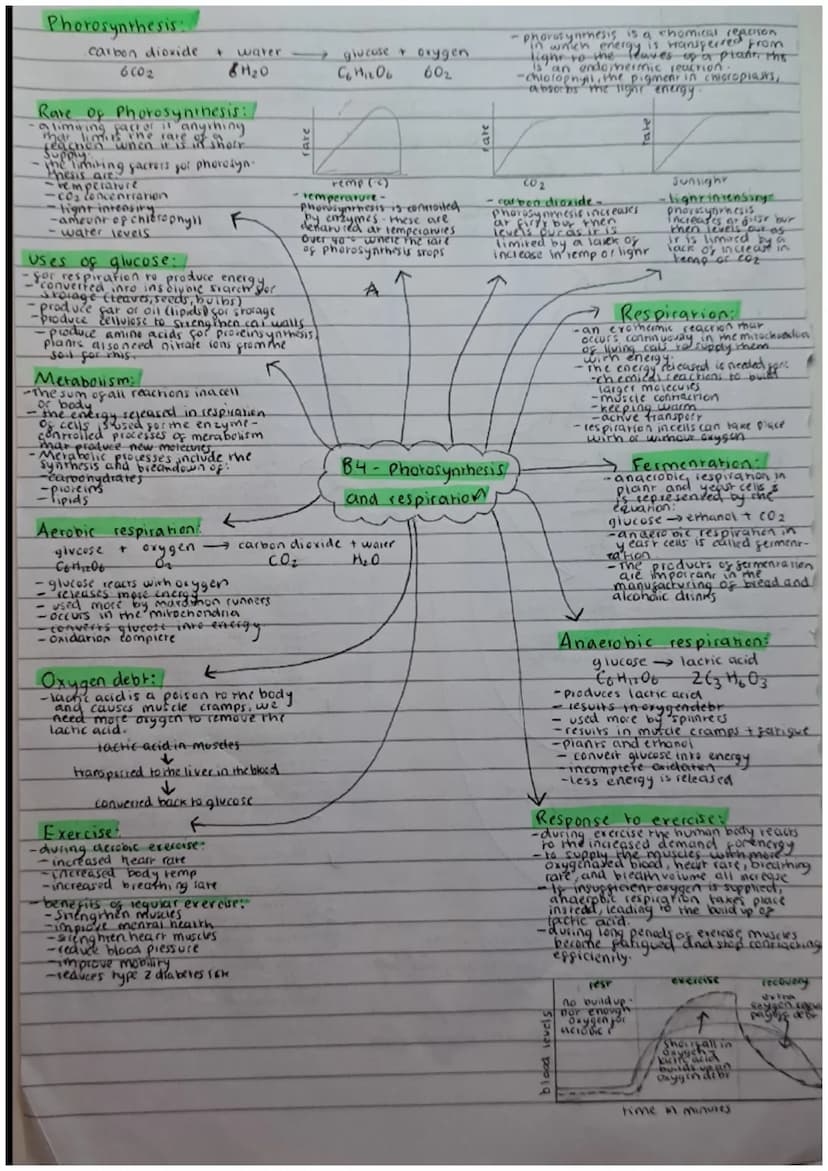 Photosynthesis:
carbon dioxide + water → glucose + oxygen
6CO2 6H2O C6H12O6 6O2
- photosynthesis is a chemical reaction
in which energy is transferred from
light to the leaves of a plant, this
is an endothermic reaction.
- chlorophyll, the pigment in chloroplasts,
absorbs the light energy.
Rate of Photosynthesis:
- a limiting factor is anything
that limits the rate of a
reaction when it is in short
supply.
- the limiting factors for photosyn-
thesis are:
- temperature
- CO2 concentration
- light intensity
- amount of chlorophyll
- water levels
rate
temp (°c)
rate
CO2
rate
sunlight
- temperature -
Photosynthesis is controlled
by enzymes. these are
denatured at temperatures
over 40° where the rate
of photosynthesis stops
- carbon dioxide -
photosynthesis increases
at first but then
levels out as it is
limited by a lack of
increase in temp or light
- light intensity -
photosynthesis
increases at first but
then levels out as
it is limited by a
lack of increase in
temp or CO2
A
Uses of glucose:
- for respiration to produce energy
- converted into insoluble starch for
storage (leaves, seeds, bulbs)
- produce fat or oil (lipids) for storage
- produce cellulose to strengthen cell walls
- produce amino acids for protein synthesis,
plants also need nitrate ions from the
soil for this.
Respiration:
- an exothermic reaction that
occurs continuously in the mitochondria
of living cells to supply them
with energy.
- the energy released is needed for:
- chemical reactions to build
larger molecules
- muscle contraction
- keeping warm
- active transport
- respiration in cells can take place
with or without oxygen
Metabolism:
- The sum of all reactions in a cell
or body
- the energy released in respiration
of cells is used for the enzyme-
controlled processes of metabolism
that produce new molecules
- Metabolic processes include the
synthesis and breakdown of:
- carbohydrates
- proteins
- lipids
B4 - Photosynthesis
and respiration
Fermentation:
- anaerobic respiration in
plant and yeast cells
is represented by the
equation:
glucose → ethanol + CO2
- anaerobic respiration in
yeast cells is called fermen-
tation
- The products of fermentation
are important in the
manufacturing of bread and
alcoholic drinks
Aerobic respiration:
glucose + oxygen → carbon dioxide + water
C6H12O6 O2 CO2 H2O
- glucose reacts with oxygen
- releases more energy
- used more by marathon runners
- occurs in the mitochondria
- converts glucose into energy
- oxidation complete
Anaerobic respiration:
glucose → lactic acid
C6H12O6 2C3H6O3
- produces lactic acid
- results in oxygen debt
- used more by sprinters
- results in muscle cramps + fatigue
- plants and ethanol
- convert glucose into energy
- incomplete oxidation
- less energy is released
Oxygen debt:
- lactic acid is a poison to the body
and causes muscle cramps, we
need more oxygen to remove the
lactic acid.
lactic acid in muscles
↓
transported to the liver in the blood
↓
converted back to glucose
Exercise:
- during aerobic exercise:
- increased heart rate
- increased body temp
- increased breathing rate
- benefits of regular exercise:
- strengthen muscles
- improve mental health
- strengthen heart muscles
- reduce blood pressure
- improve mobility
- reduces type 2 diabetes risk
Response to exercise:
- during exercise the human body reacts
to the increased demand for energy
- to supply the muscles with more
oxygenated blood, heart rate, breathing
rate, and breath volume all increase
- If insufficient oxygen is supplied,
anaerobic respiration takes place
instead, leading to the build up of
lactic acid.
- during long periods of exercise muscles
become fatigued and stop contracting
efficiently.
rest exercise recovery
no build up
not enough
oxygen for
aerobic
Shortfall in
oxygen -
lactic acid
builds up an
oxygen debt
extra
oxygen
paying debt
blood levels
time in minutes